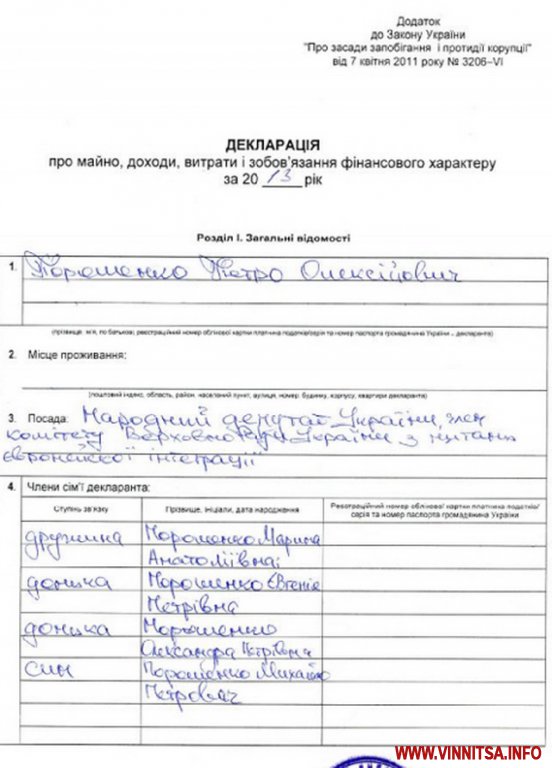 Додаток
до Закону України
"Про засади запобігання і протидії корупції"
від 7 квітня 2011 року № 3206–VI
ДЕКЛАРАЦІЯ
про майно, доходи, витрати і зобов'язання фінансового характеру
за 20 13 рік
Розділ I. Загальні відомості
1. Порошенко Петро Олексійович
(прізвище, ім'я, по батькові, реєстраційний номер облікової картки платника податків/серія та номер паспорта громадянина України – декларанта)
2. Місце проживання:
(поштовий індекс, область, район, населений пункт, вулиця, номер: будинку, корпусу, квартири декларанта)
3. Посада: Народний депутат України, член
комітету Верховної Ради України з питань
європейської інтеграції
4. Члени сім'ї декларанта:
Ступінь зв'язку Прізвище, ініціали, дата народження Реєстраційний номер облікової картки платника податків/
серія та номер паспорта громадянина України
дружина Порошенко Марина
Анатоліївна;
донька Порошенко Євгенія
Петрівна
донька Порошенко
Олександра Петрівна
син Порошенко Михайло
Петрович
WWW.VINNITSA.INFO